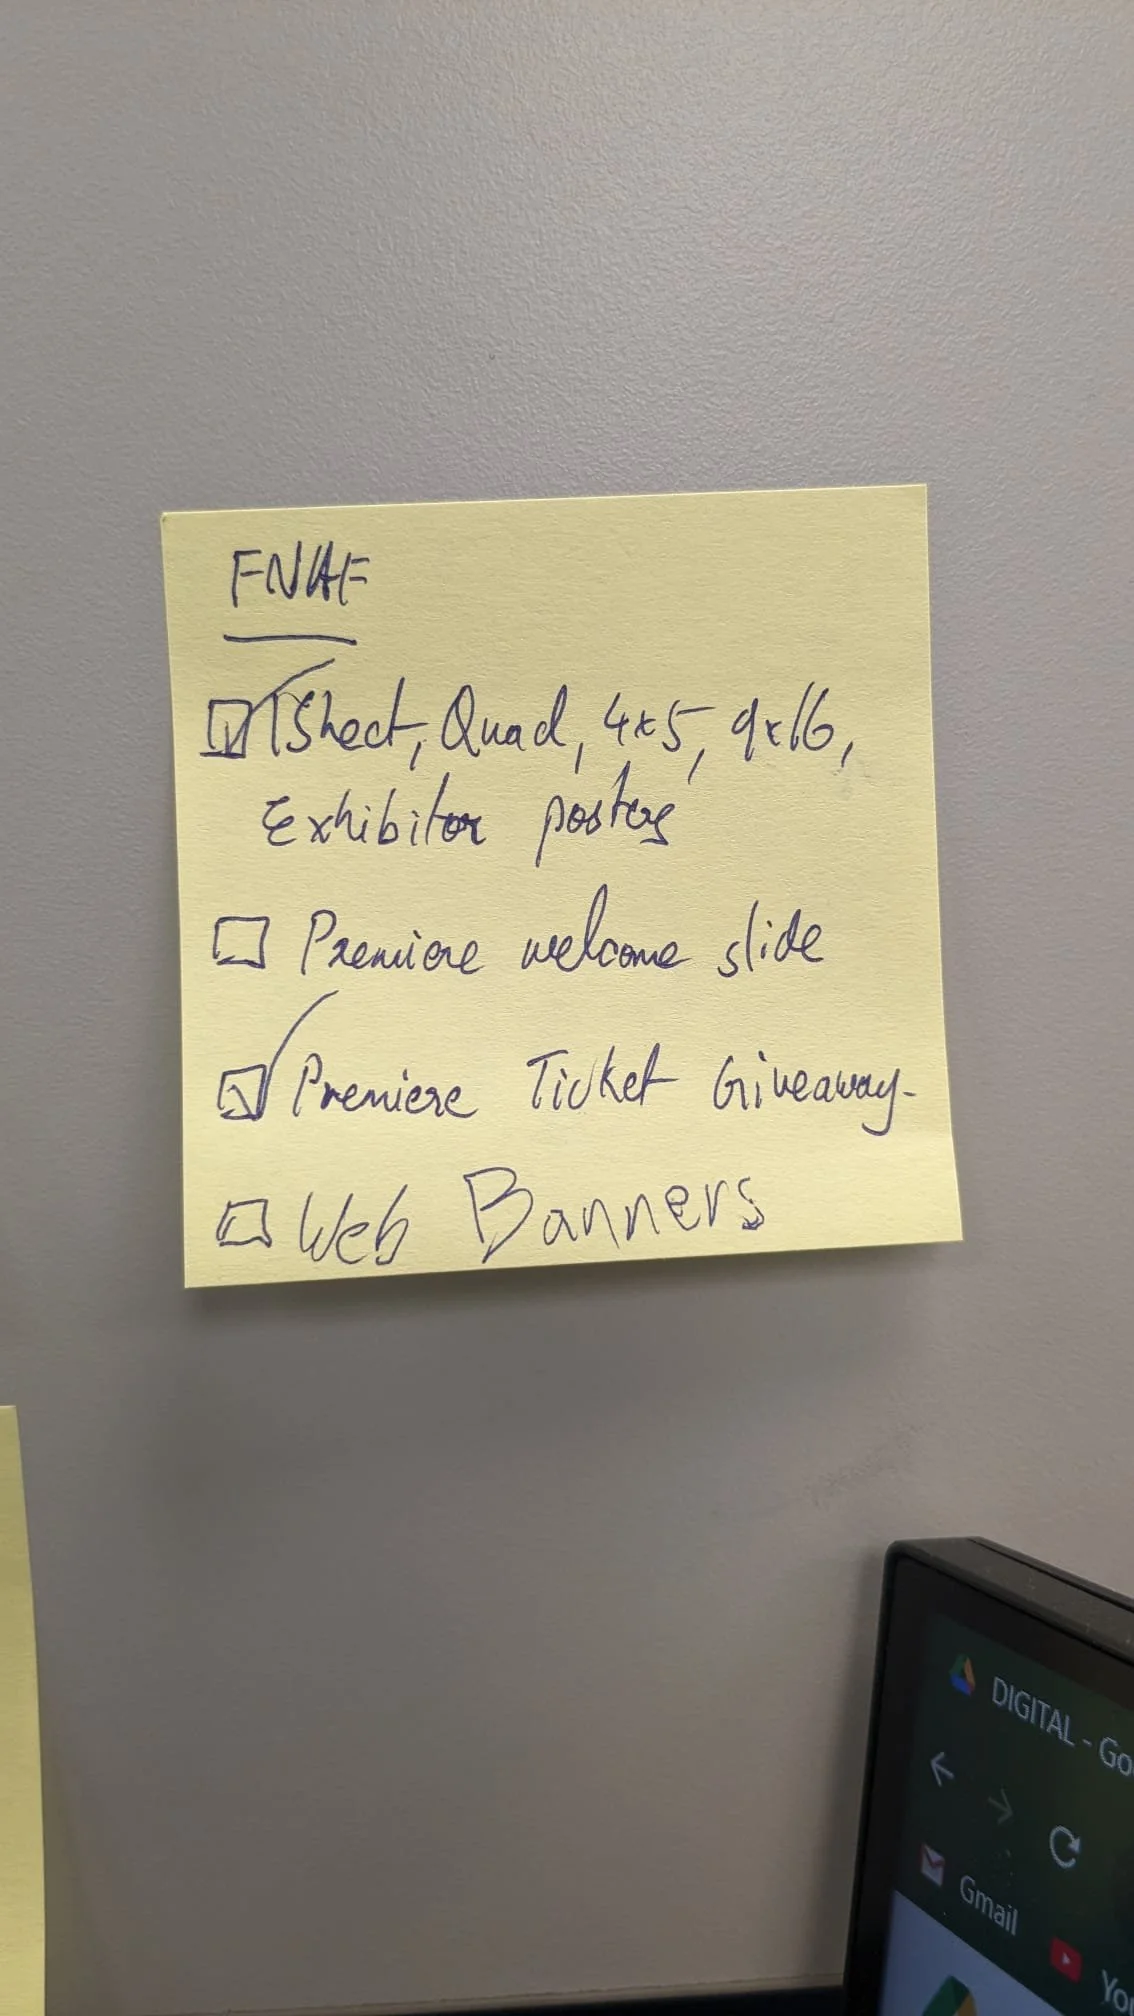 FNAF
1Sheet, Quad, 4x5, 9x16,
Exhibitor posters
Premiere welcome slide
Premiere Ticket Giveaway-
Web Banners
DIGITAL - Go
Gmail
You